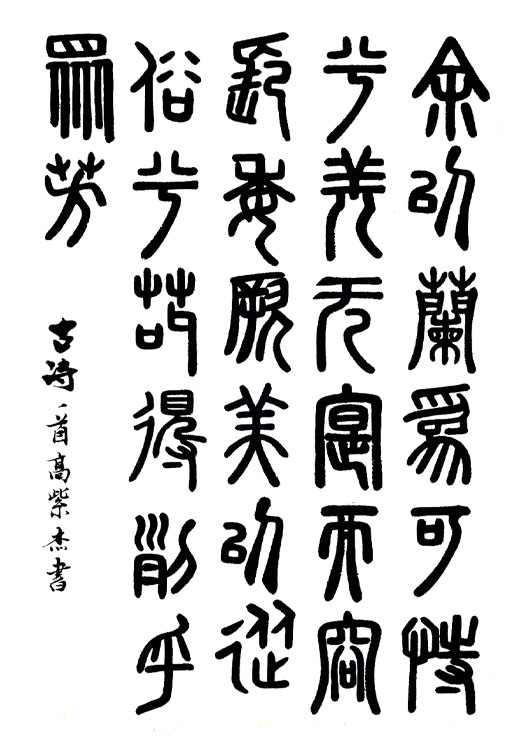 余以蘭為可恃
兮羌无實而容
長委厥美以從
俗兮苟得列乎
眾芳
古诗一首高紫杰書